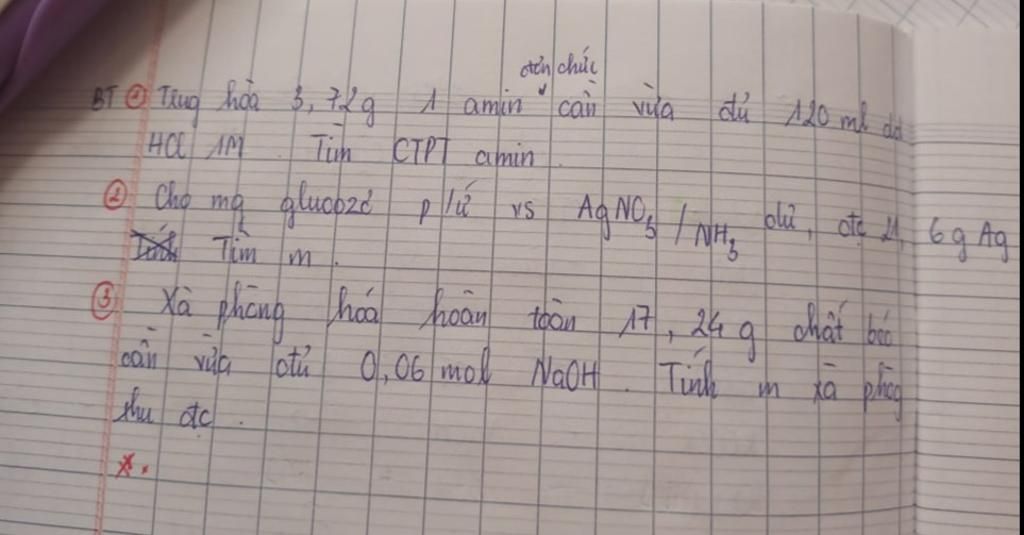 đơn chức
BT ① Trung hòa 3,72g 1 amin cần vừa đủ 120 ml dd
HCl 1M. Tìm CTPT amin.
② Cho mg glucozơ p/ứ vs AgNO3/NH3 dư, đc 21,6g Ag
Tìm m.
③ Xà phòng hoá hoàn toàn 17,24g chất béo
cần vừa đủ 0,06 mol NaOH. Tính m xà phòg
thu đc.
*.